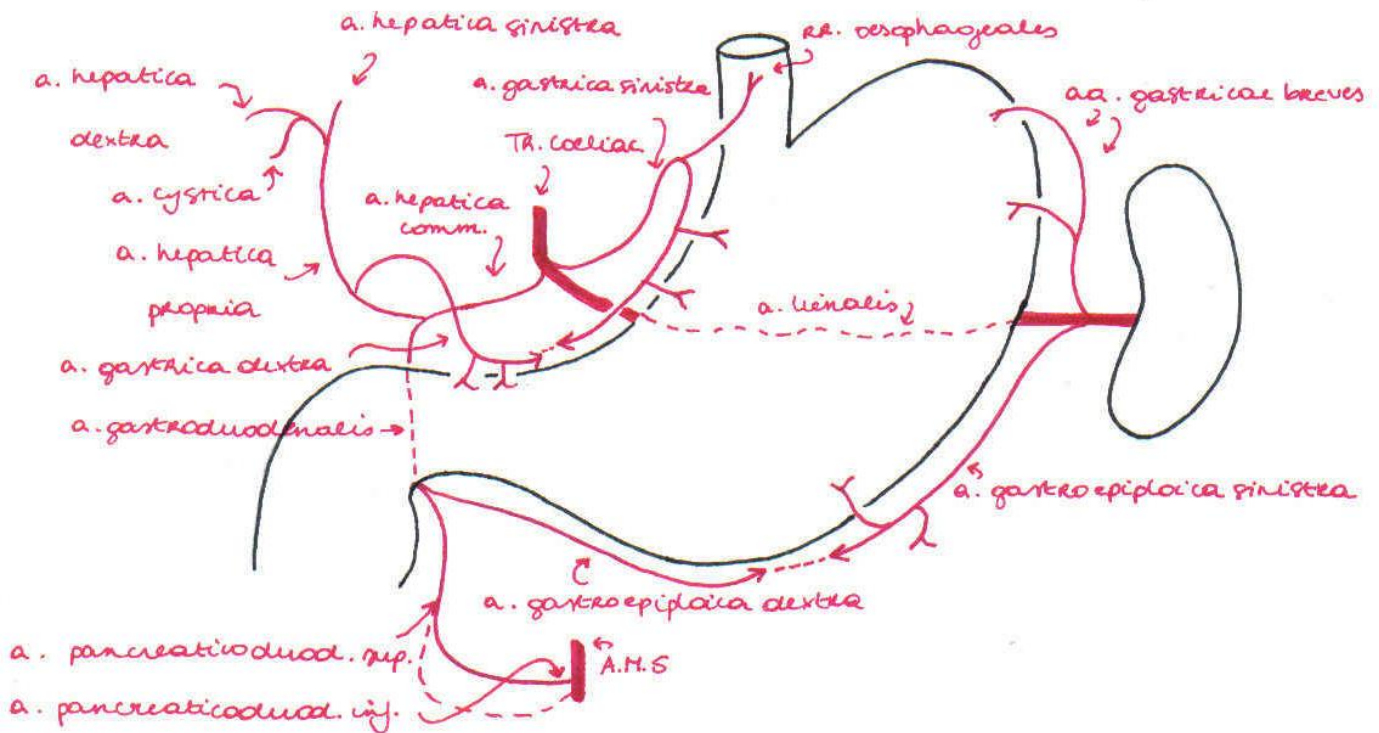 a. hepatica sinistra
RR. oesophageales
a. hepatica
dextra
a. gastrica sinistra
aa. gastricae breves
Tr. coeliac.
a. cystica
a. hepatica
comm.
a. hepatica
propria
a. lienalis
a. gastrica dextra
a. gastroduodenalis
a. gastroepiploica sinistra
a. gastroepiploica dextra
a. pancreaticoduod. sup.
A.M.S
a. pancreaticoduod. inf.